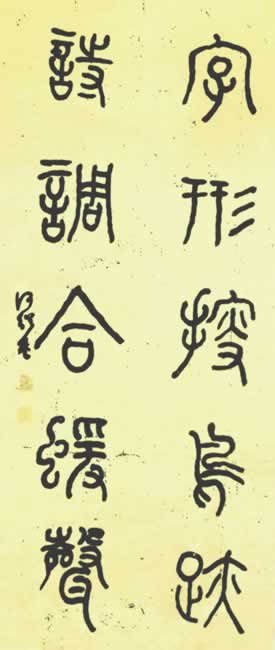 字形探鳥跡
詩調合蝯聲